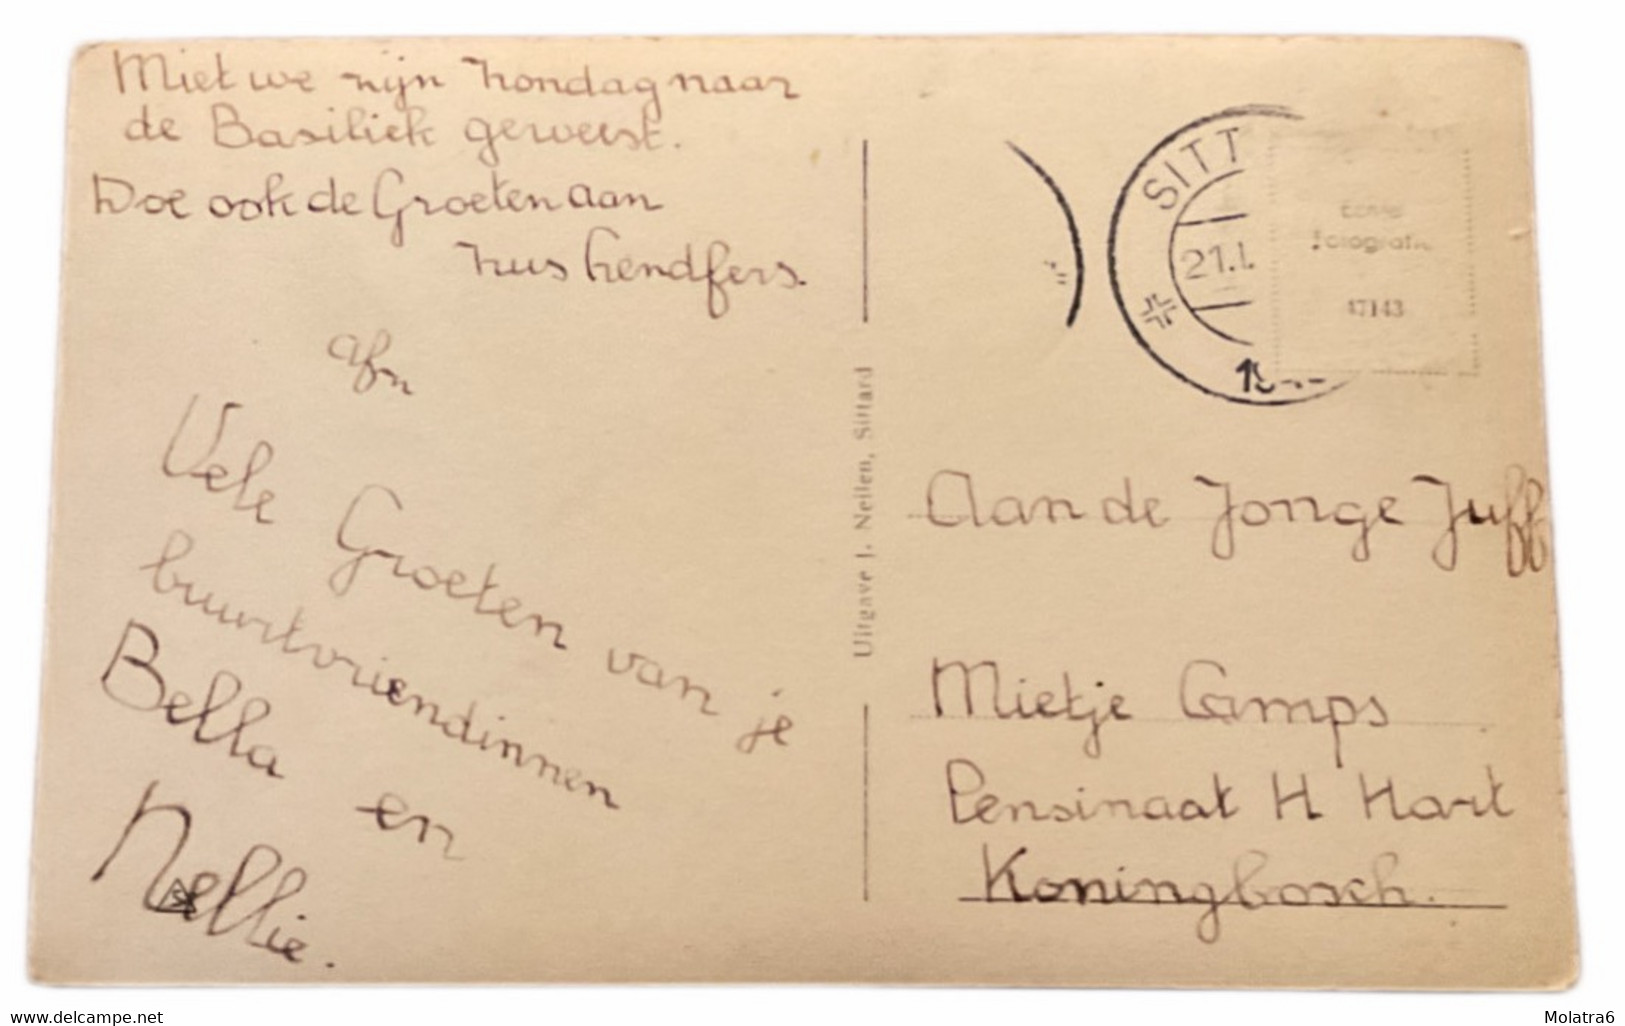 Miet we zijn Zondag naar
de Basiliek geweest.
Doe ook de Groeten aan
zus
afn
Vele Groeten van je
buurtvriendinnen
Bella en
Nellie.
Uitgave J. Nelien, Sittard
SITT
21.I.
19
Echte
fotografie
47143
Aan de Jonge Juff
Mietje Camps
Pensinaat H Hart
Koningbosch.
www.delcampe.net
Molatra6